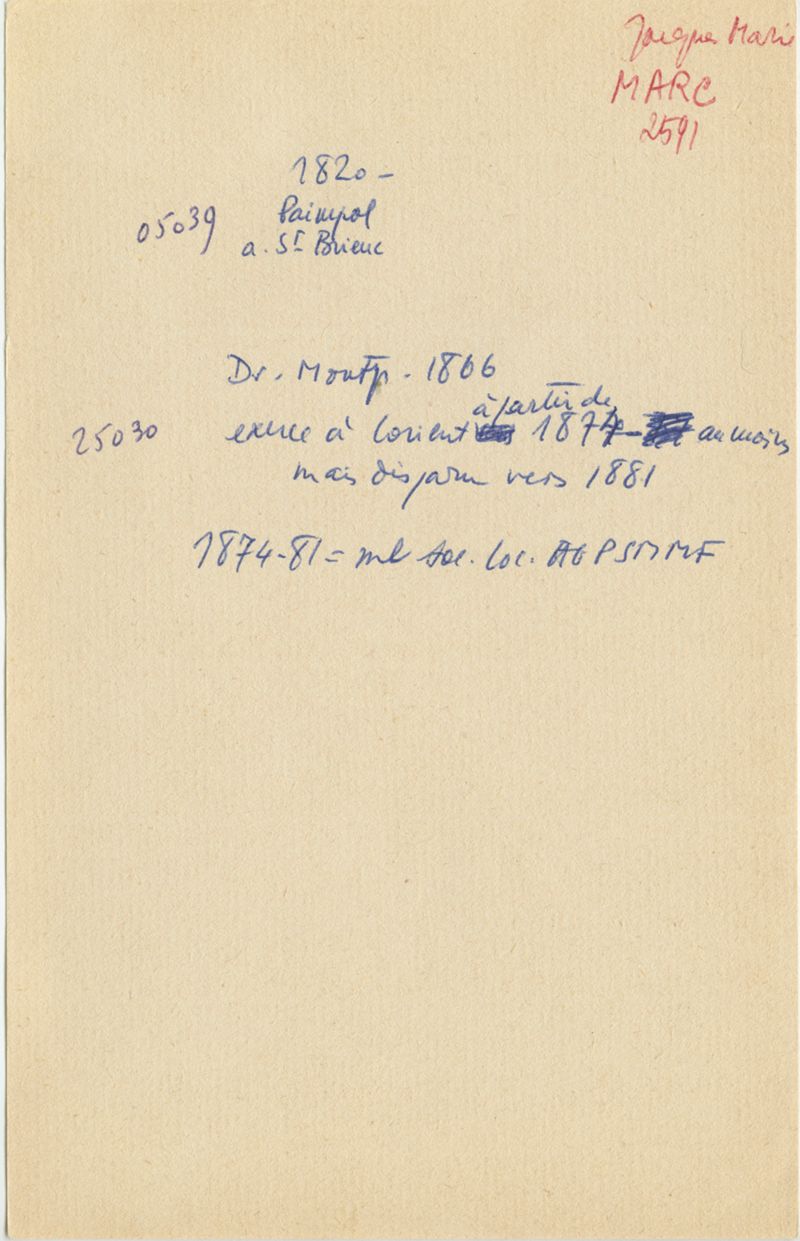 Jacques Marie
MARC
2591
1820 -
05039 Paimpol
a. St Brieuc
Dr. Montp. 1866
à partir de
25030 exerce à Lorient 1874 - au moins
mais disparu vers 1881
1874-81 = mb soc. loc. AGPSMMF